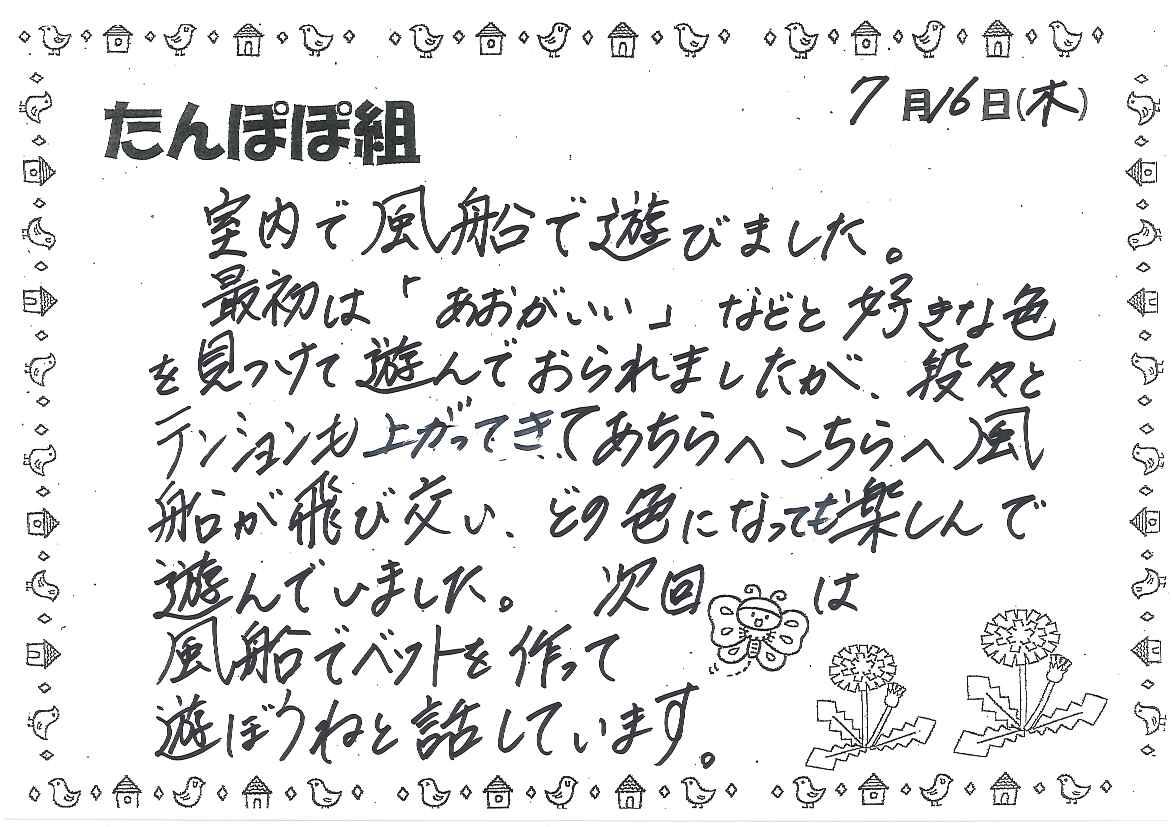 7月16日(木)
たんぽぽ組
室内で風船で遊びました。
最初は「あおがいい」などと好きな色
を見つけて遊んでおられましたが、段々と
テンションも上がってきてあちらへこちらへ風
船が飛び交い、どの色になっても楽しんで
遊んでいました。次回は
風船でベットを作って
遊ぼうねと話しています。